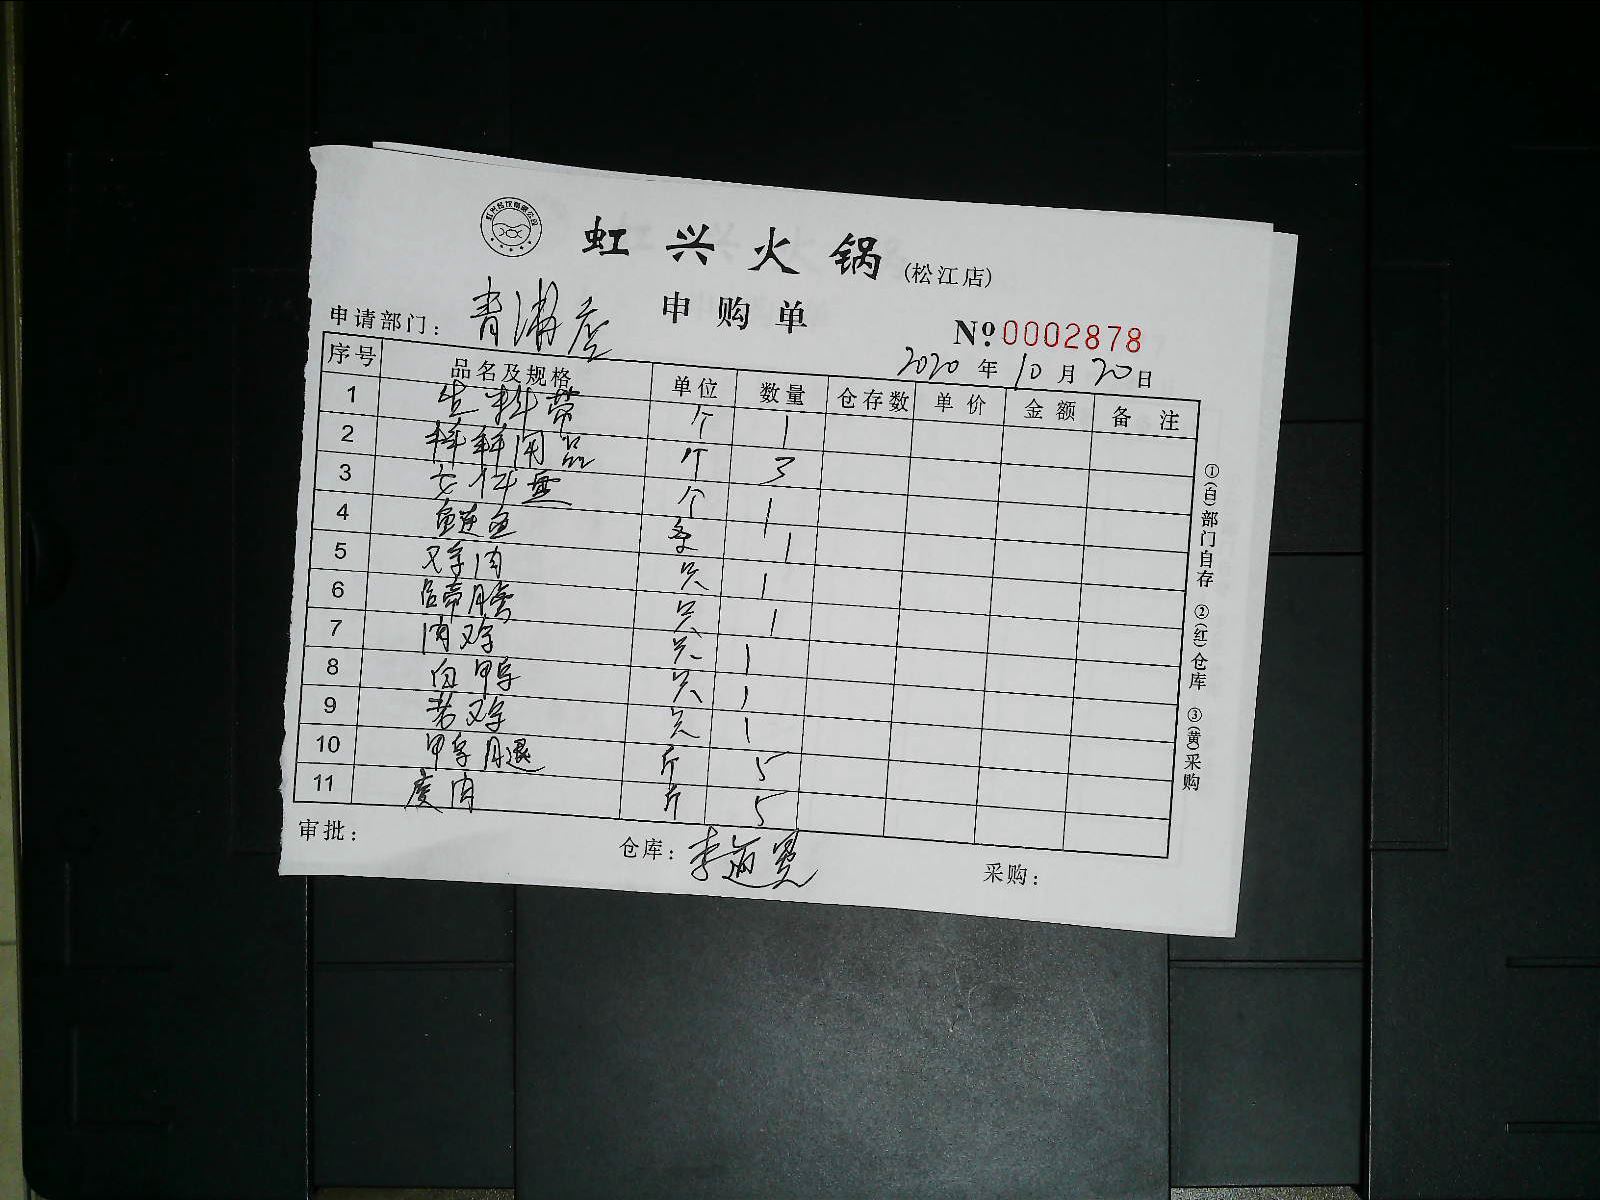 虹兴火锅(松江店)
申购单
申请部门: 青浦店
№ 0002878
2020年10月20日
序号 品名及规格 单位 数量 仓存数 单价 金额 备注
1 个 1
2 用品 个 3
3 个 1
4 鲢鱼 条 1
5 鸡肉 只 1
6 蹄膀 只 1
7 肉鸡 只 1
8 白鸭 只 1
9 老鸡 只 1
10 鸭腿 斤 5
11 肉 斤 5
审批: 仓库: 李 采购:
①(白)部门自存 ②(红)仓库 ③(黄)采购